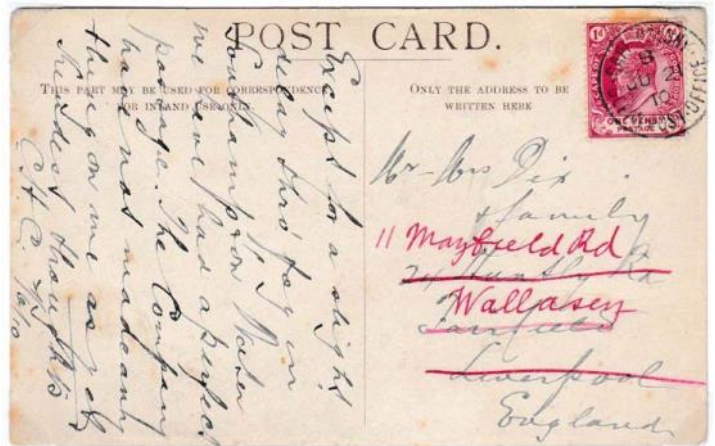 POST CARD.
THIS PART MAY BE USED FOR CORRESPONDENCE
FOR INLAND USE ONLY.
ONLY THE ADDRESS TO BE
WRITTEN HERE
Except for a slight
delay thro' fog in
Southampton Water
we have had a perfect
passage. The Company
has not made any
thing on me as yet
Kindest thoughts
ONE PENNY
POSTAGE
Mr & Mrs Dix
& family
11 Mayfield Rd
Wallasey
Liverpool
England